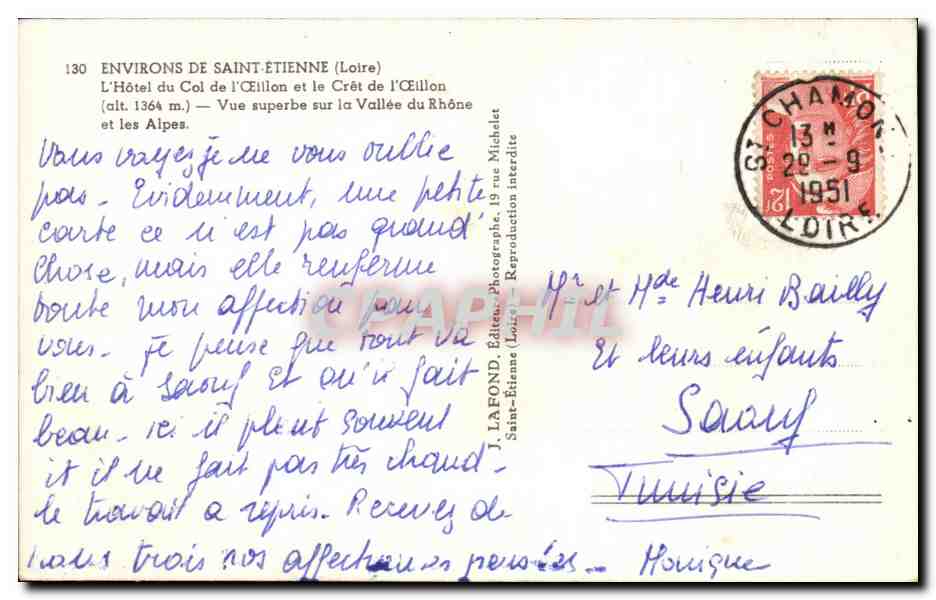 130 ENVIRONS DE SAINT-ÉTIENNE (Loire)
L'Hôtel du Col de l'Œillon et le Crêt de l'Œillon
(alt. 1364 m.) — Vue superbe sur la Vallée du Rhône
et les Alpes.
Vous voyez je ne vous oublie
pas - Evidemment, une petite
carte ce n'est pas grand'
chose, mais elle renferme
toute mon affection pour
vous. Je pense que tout va
bien à Saouf et qu'il fait
beau - ici il pleut souvent
et il ne fait pas très chaud -
le travail a repris. Recevez de
nous trois nos affectueuses pensées - Monique
J. LAFOND, Éditeur-Photographe, 19 rue Michelet
Saint-Étienne (Loire) — Reproduction interdite
ST CHAMOND
13 H
29 - 9
1951
LOIRE
POSTES
12F
Mr et Mde Henri Bailly
Et leurs enfants
Saouf
Tunisie
CPAPHIL